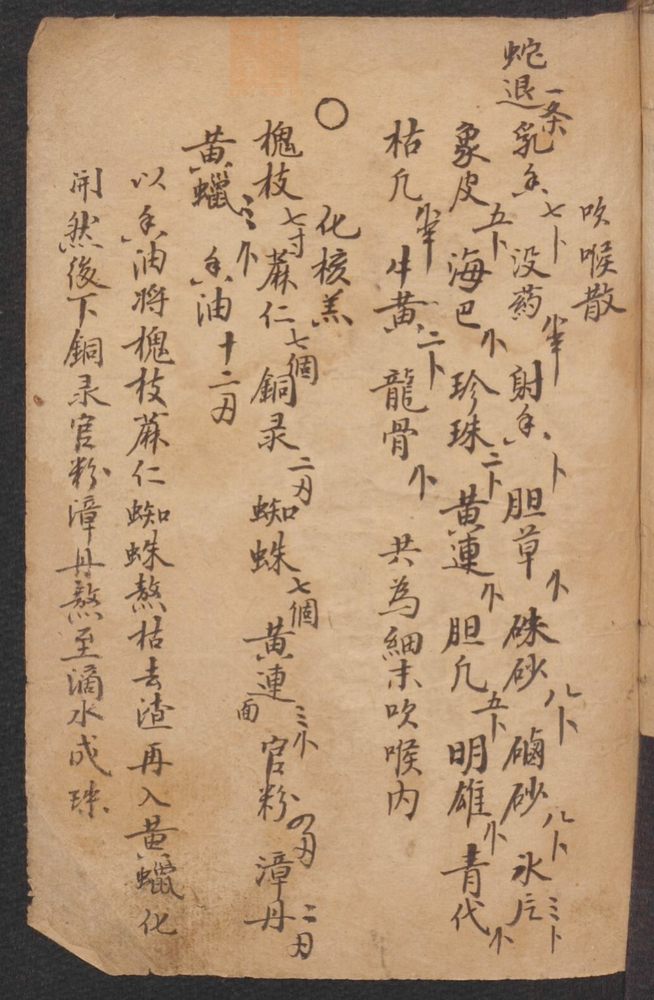 吹喉散
蛇退一条 乳香七卜 没药 射香、卜 胆草 硃砂八卜 磠砂八卜 氷片三卜
象皮五卜 海巴 珍珠二卜 黄連 胆凡五卜 明雄 青代
枯凡 牛黄二卜 龍骨 共為細末吹喉内
○ 化核羔
槐枝七寸 蔴仁七個 銅录二刃 蜘蛛七個 黄連面三 官粉四刃 漳丹二刃
黄蠟三 香油十二刃
以香油将槐枝蔴仁蜘蛛熬枯去渣再入黄蠟化
開然後下銅录官粉漳丹熬至滴水成珠